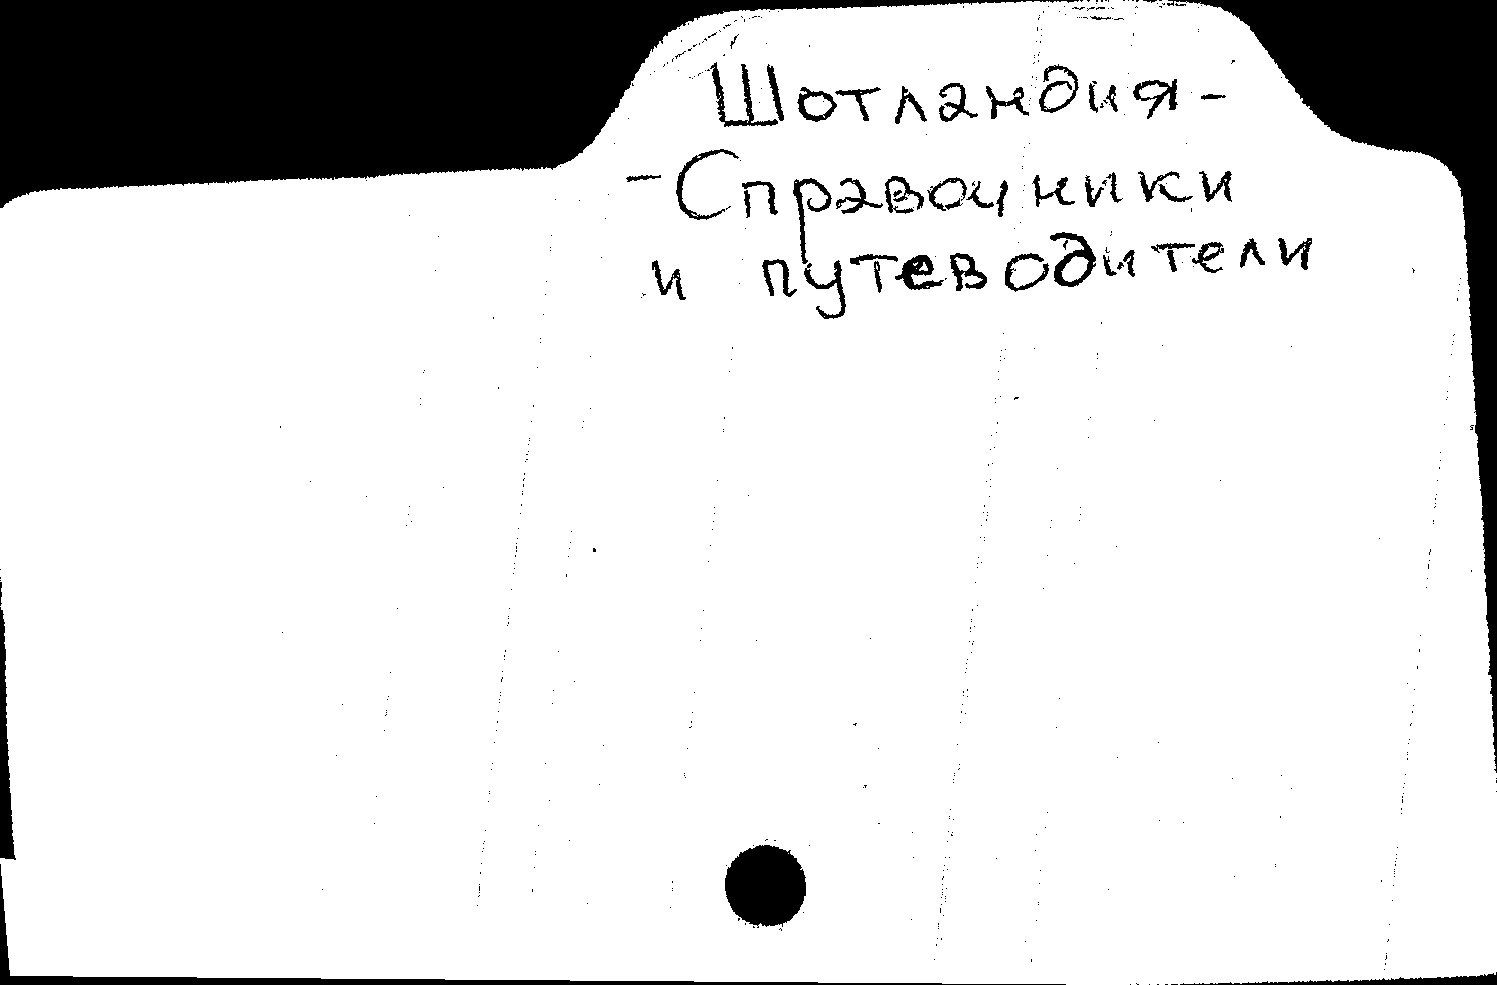 Шотландия-
-Справочники
и путеводители